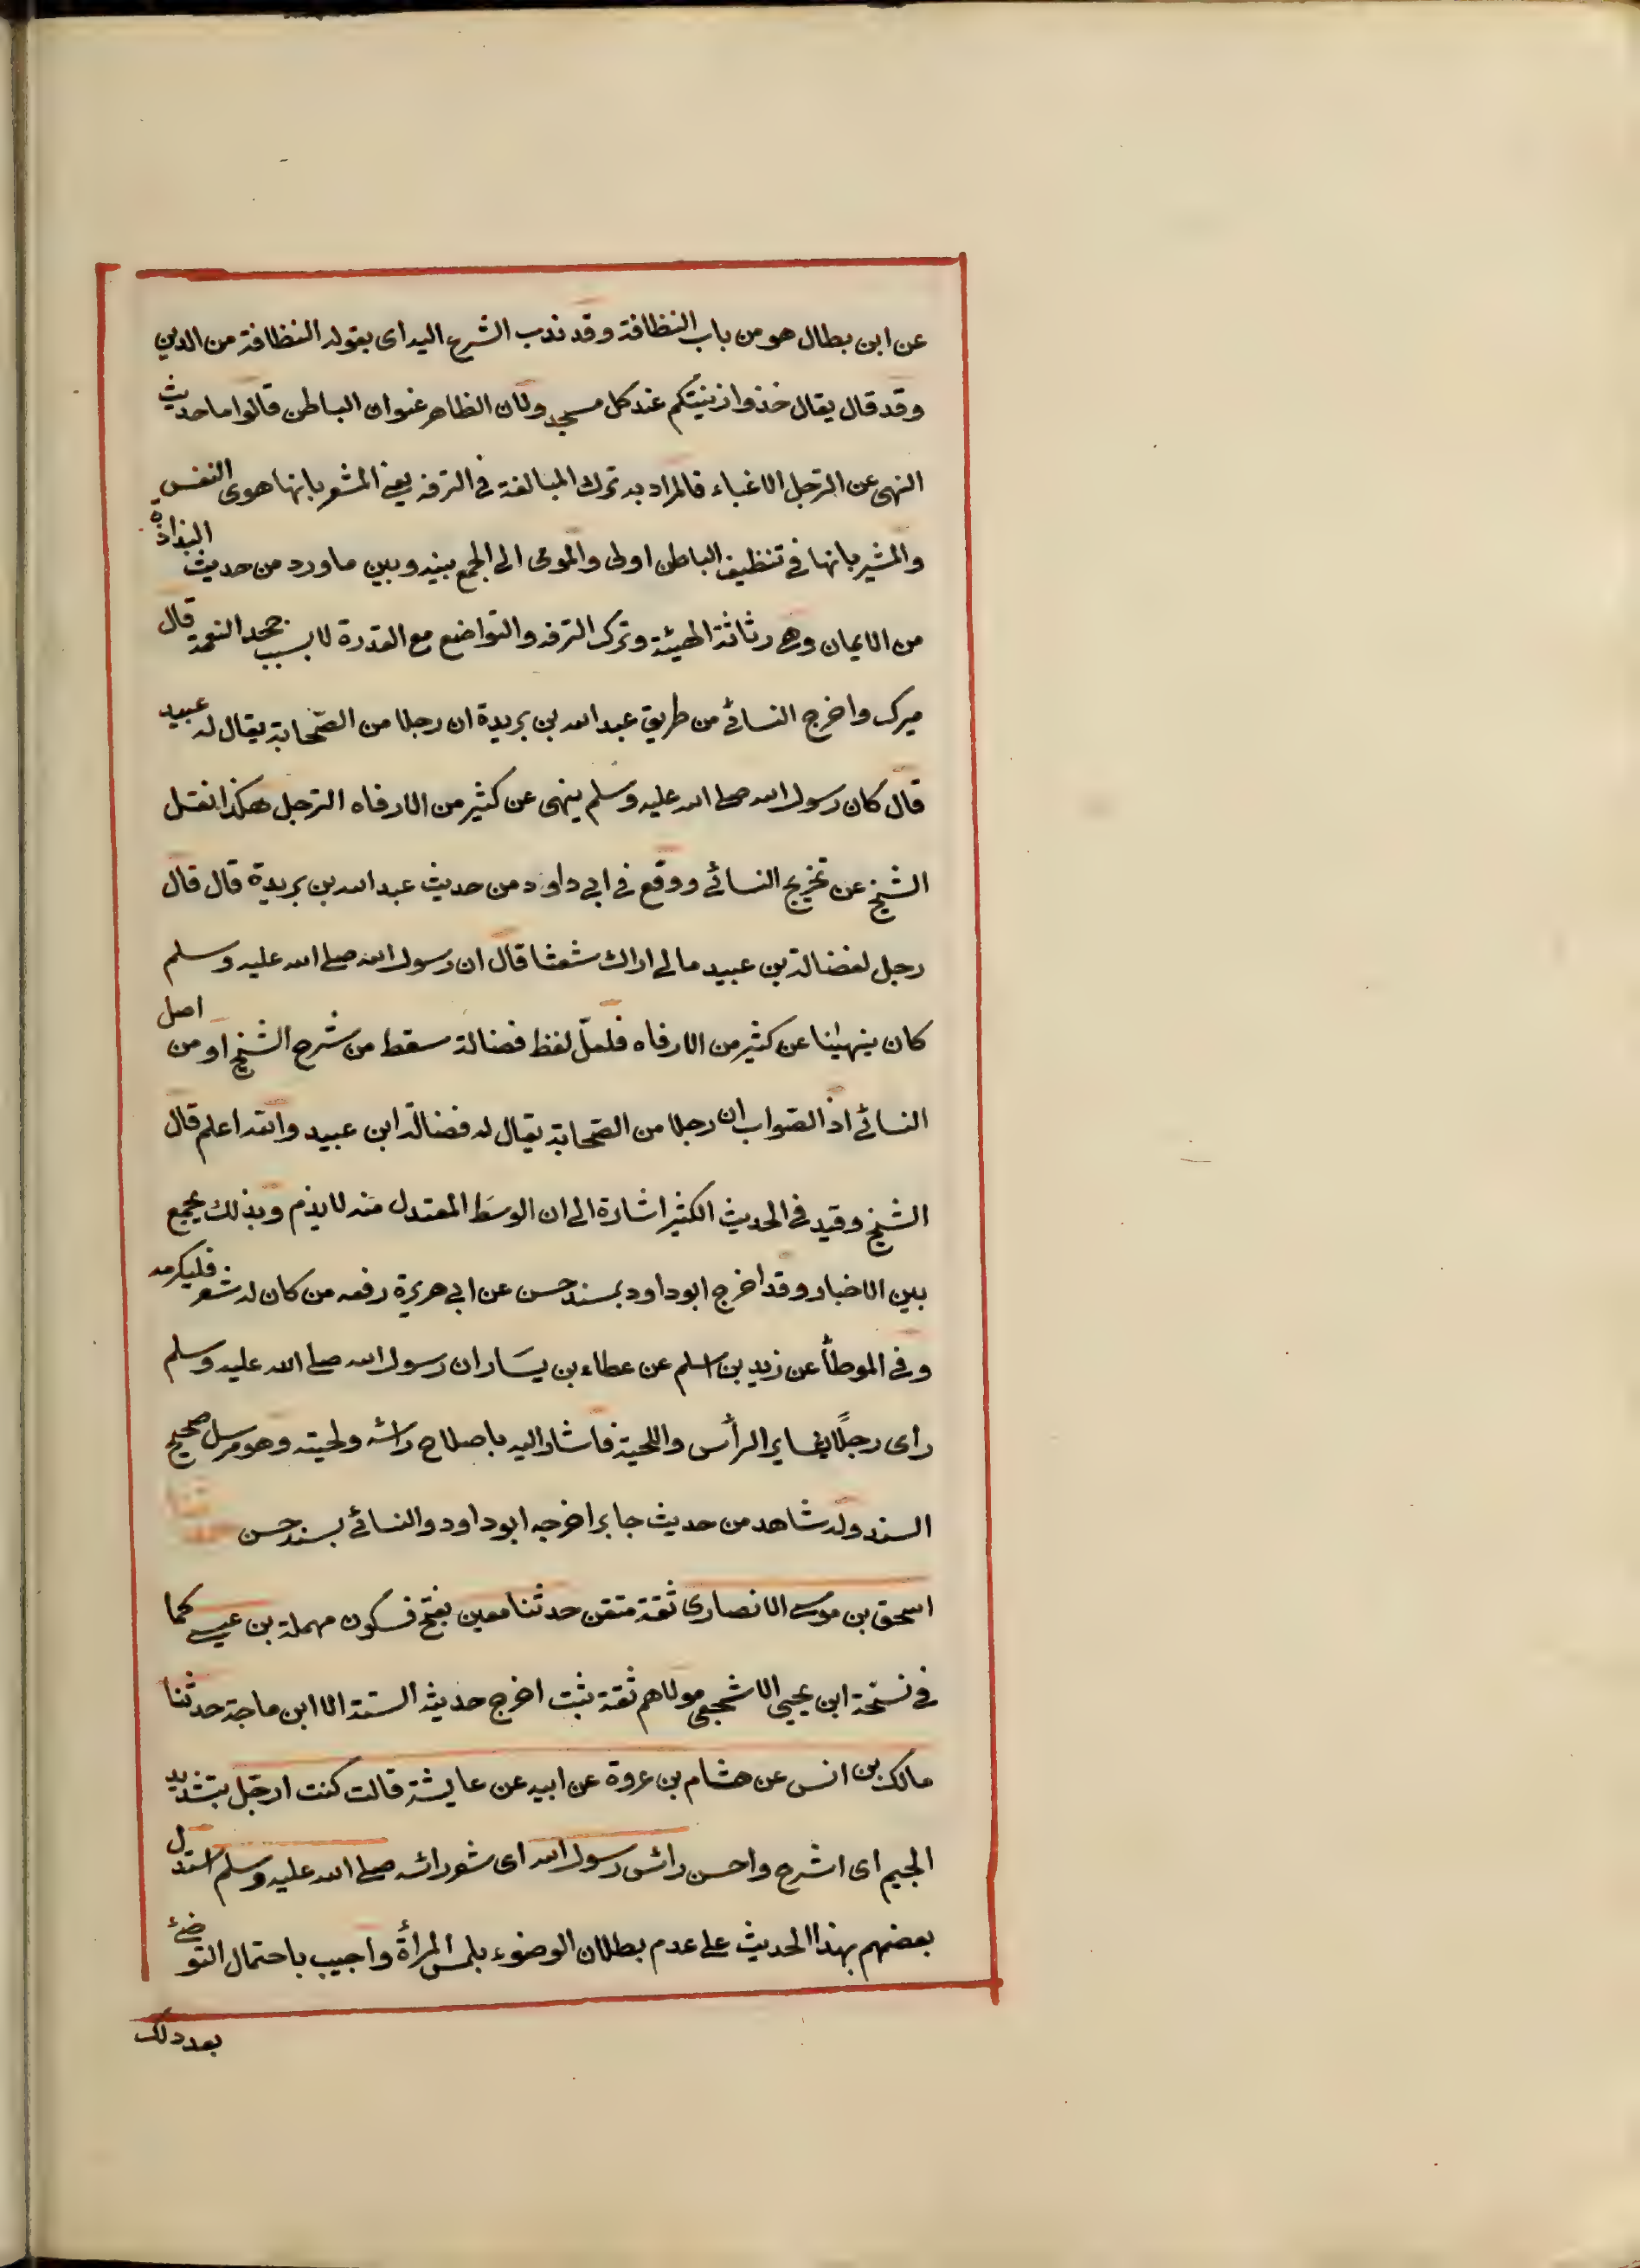 عن ابن بطال هو من باب النظافة وقد ندب الشرع اليه اى بقوله النظافة من الدين
وقد قال يقال خذوا زينتكم عند كل مسجد ولان الظاهر عنوان الباطن قالوا ما حديث
النهى عن الترجل الا غباء فالمراد به ترك المبالغة فى الترفه يعنى المشعر بانها هوى النفس
والمشير بانها فى تنظيف الباطن اولى والمومى الى الجمع بينه وبين ما ورد من حديث البذاذة
من الايمان وهى رثاثة الهيئة وترك الترفه والتواضع مع القدرة لا بسبب جحد النعمة قال
ميرك واخرج النسائى من طريق عبد الله بن بريدة ان رجلا من الصحابة يقال له عبيد
قال كان رسول الله صلى الله عليه وسلم ينهى عن كثير من الارفاه الترجل هكذا نقل
الشيخ عن تخريج النسائى ووقع فى ابى داود من حديث عبد الله بن بريدة قال قال
رجل لفضالة بن عبيد ما لى اراك شعثا قال ان رسول الله صلى الله عليه وسلم
كان ينهينا عن كثير من الارفاه فلعلّ لفظ فضالة سقط من شرح الشيخ او من اصل
النسائى اذ الصواب ان رجلا من الصحابة يقال له فضالة ابن عبيد والله اعلم قال
الشيخ وقيد فى الحديث الكثير اشارة الى ان الوسط المعتدل منه لا يذم وبذلك يجمع
بين الاخبار وقد اخرج ابو داود بسند حسن عن ابى هريرة رفعه من كان له شعر فليكرمه
وفى الموطأ عن زيد بن اسلم عن عطاء بن يسَار ان رسول الله صلى الله عليه وسلم
راى رجلًا ثاير الرأس واللحية فاشار اليه باصلاح راسه ولحيته وهو مرسل صحيح
السند وله شاهد من حديث جابر اخرجه ابو داود والنسائى بسند حسن
اسحق بن موسى الانصارى ثقة متقن حدثنا معين بفتح فسكون مهملة بن عيسى كما
فى نسخة ابن يحيى الاشجعى مولاهم ثقة ثبت اخرج حديثه الستة الا ابن ماجة حدثنا
مالك بن انس عن هشام بن عروة عن ابيه عن عايشة قالت كنت ارجّل بتشديد
الجيم اى اشرح واحسن رائس رسول الله اى شعر رائسه صلى الله عليه وسلم استدل
بعضهم بهذا الحديث على عدم بطلان الوضوء بلمس المرأة واجيب باحتمال التوضئ
بعد دلك